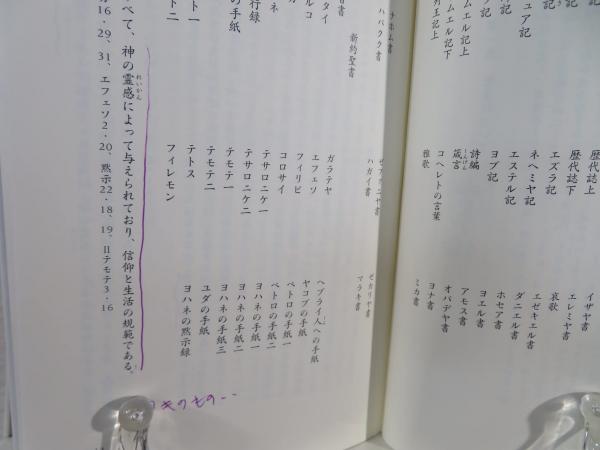 列王記上
ムエル記下
ムエル記上
シュア記
記
記
歴代誌上
歴代誌下
エズラ記
ネヘミヤ記
エステル記
ヨブ記
詩編
箴言
しんげん
コヘレトの言葉
雅歌
イザヤ書
エレミヤ書
哀歌
エゼキエル書
ダニエル書
ホセア書
ヨエル書
アモス書
オバデヤ書
ヨナ書
ミカ書
ナホム書
ハバクク書
ゼファニヤ書
ハガイ書
ゼカリヤ書
マラキ書
新約聖書
タイ
ルコ
ネ
行録
の手紙
ト一
トニ
ガラテヤ
エフェソ
フィリピ
コロサイ
テサロニケ一
テサロニケ二
テモテ一
テモテ二
テトス
フィレモン
ヘブライ人への手紙
ヤコブの手紙
ペトロの手紙一
ペトロの手紙二
ヨハネの手紙一
ヨハネの手紙二
ヨハネの手紙三
ユダの手紙
ヨハネの黙示録
べて、神の霊感によって与えられており、信仰と生活の規範である。
れいかん
16・29、31、エフェソ2・20、黙示22・18、19、Ⅱテモテ3・16
のもの‥